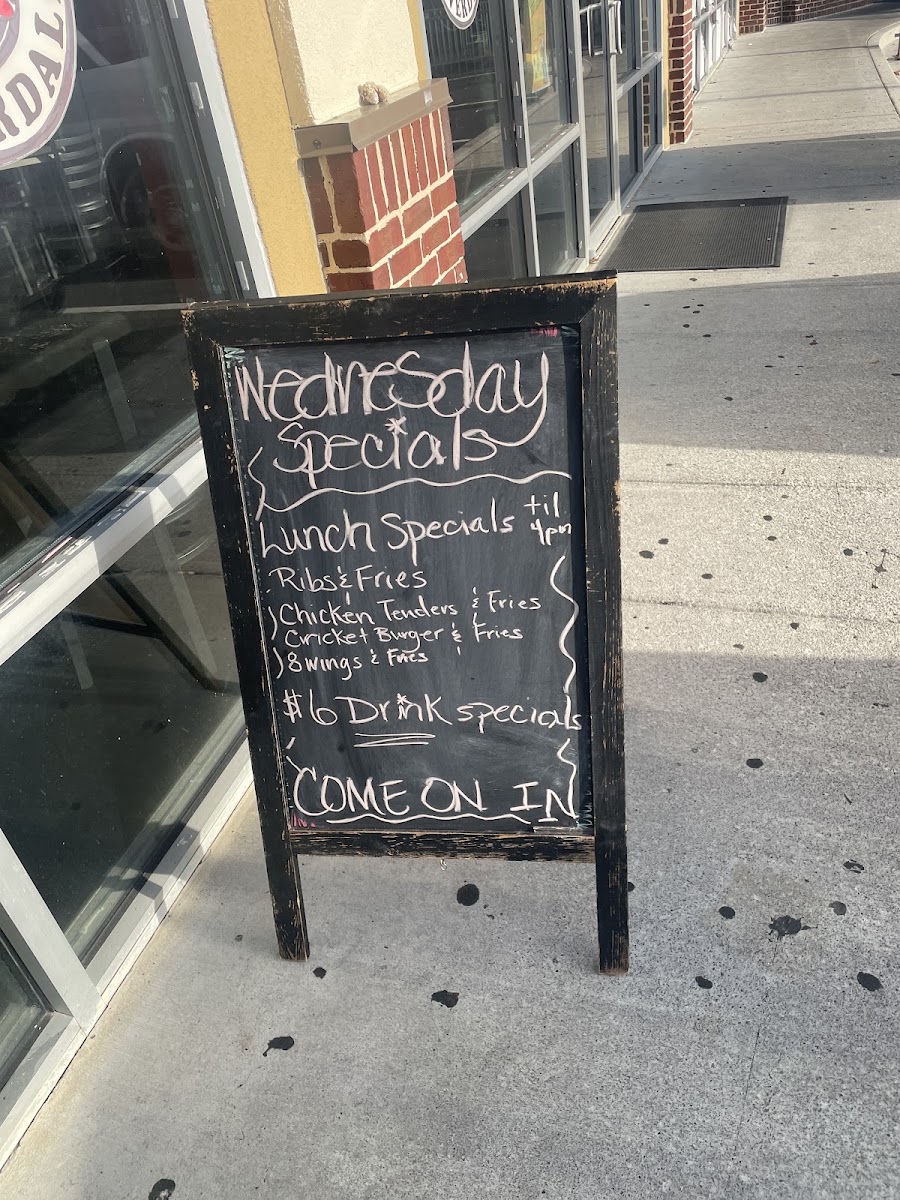 RDAL
Wednesday
Specials
Lunch Specials til
4pm
Ribs & Fries
Chicken Tenders & Fries
Cricket Burger & Fries
8 wings & Fries
$6 Drink specials
COME ON IN